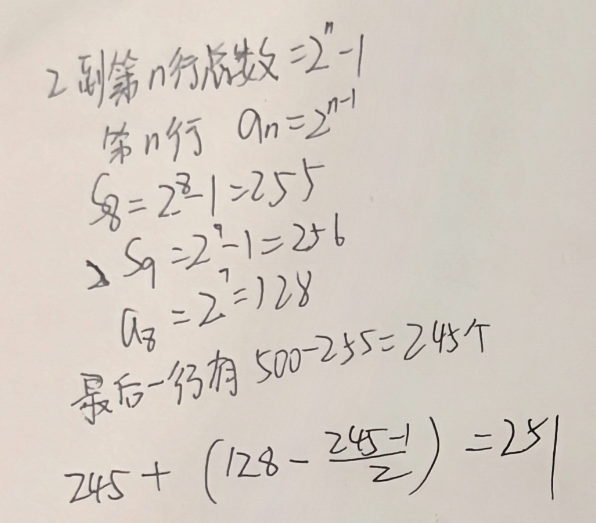 2 到第n行总数=2^n-1
第n行 an=2^{n-1}
S8=2^8-1=255
2 S9=2^9-1=256
a8=2^7=128
最后一行有 500-255=245个
245+(128-\frac{245-1}{2})=251